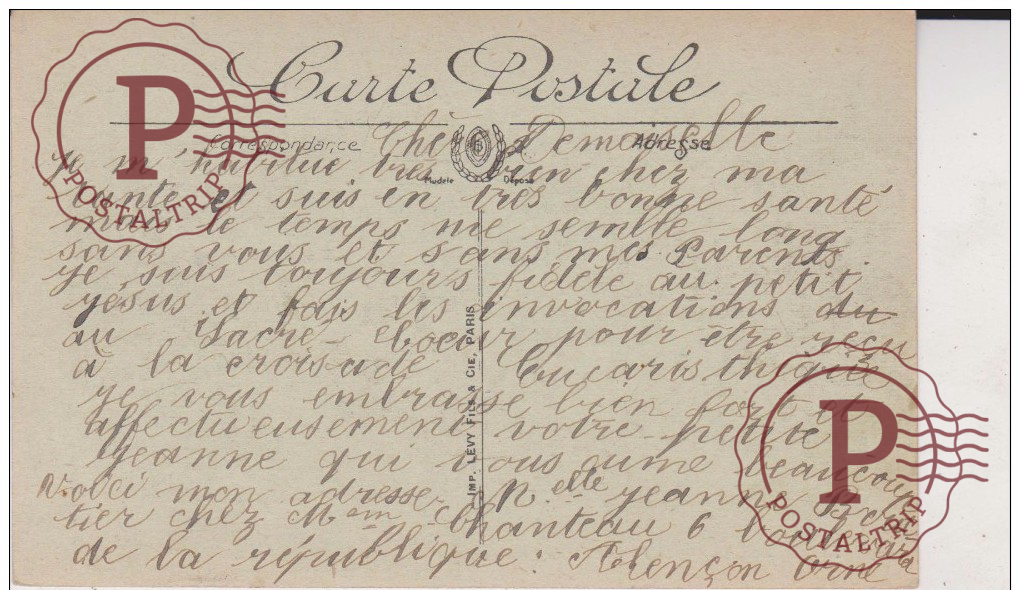 Carte Postale
Correspondance
Adresse
Modèle Déposé
Chère Demoiselle
je m'habitue très bien chez ma
tante et suis en très bonne santé
mais le temps me semble long
sans vous et sans mes Parents.
je suis toujours fidèle au petit
jésus et fais les invocations du
au Sacré-Coeur pour être reçu
à la croisade Eucaristhique
je vous embrasse bien fort et
affectueusement votre petite
jeanne qui vous aime beaucoup
Voici mon adresse Melle jeanne
tier chez Mem Chanteau 6 boulevard
de la république : Alençon Orne
IMP. LÉVY FILS & CIE, PARIS
P
POSTALTRIP
P
POSTALTRIP